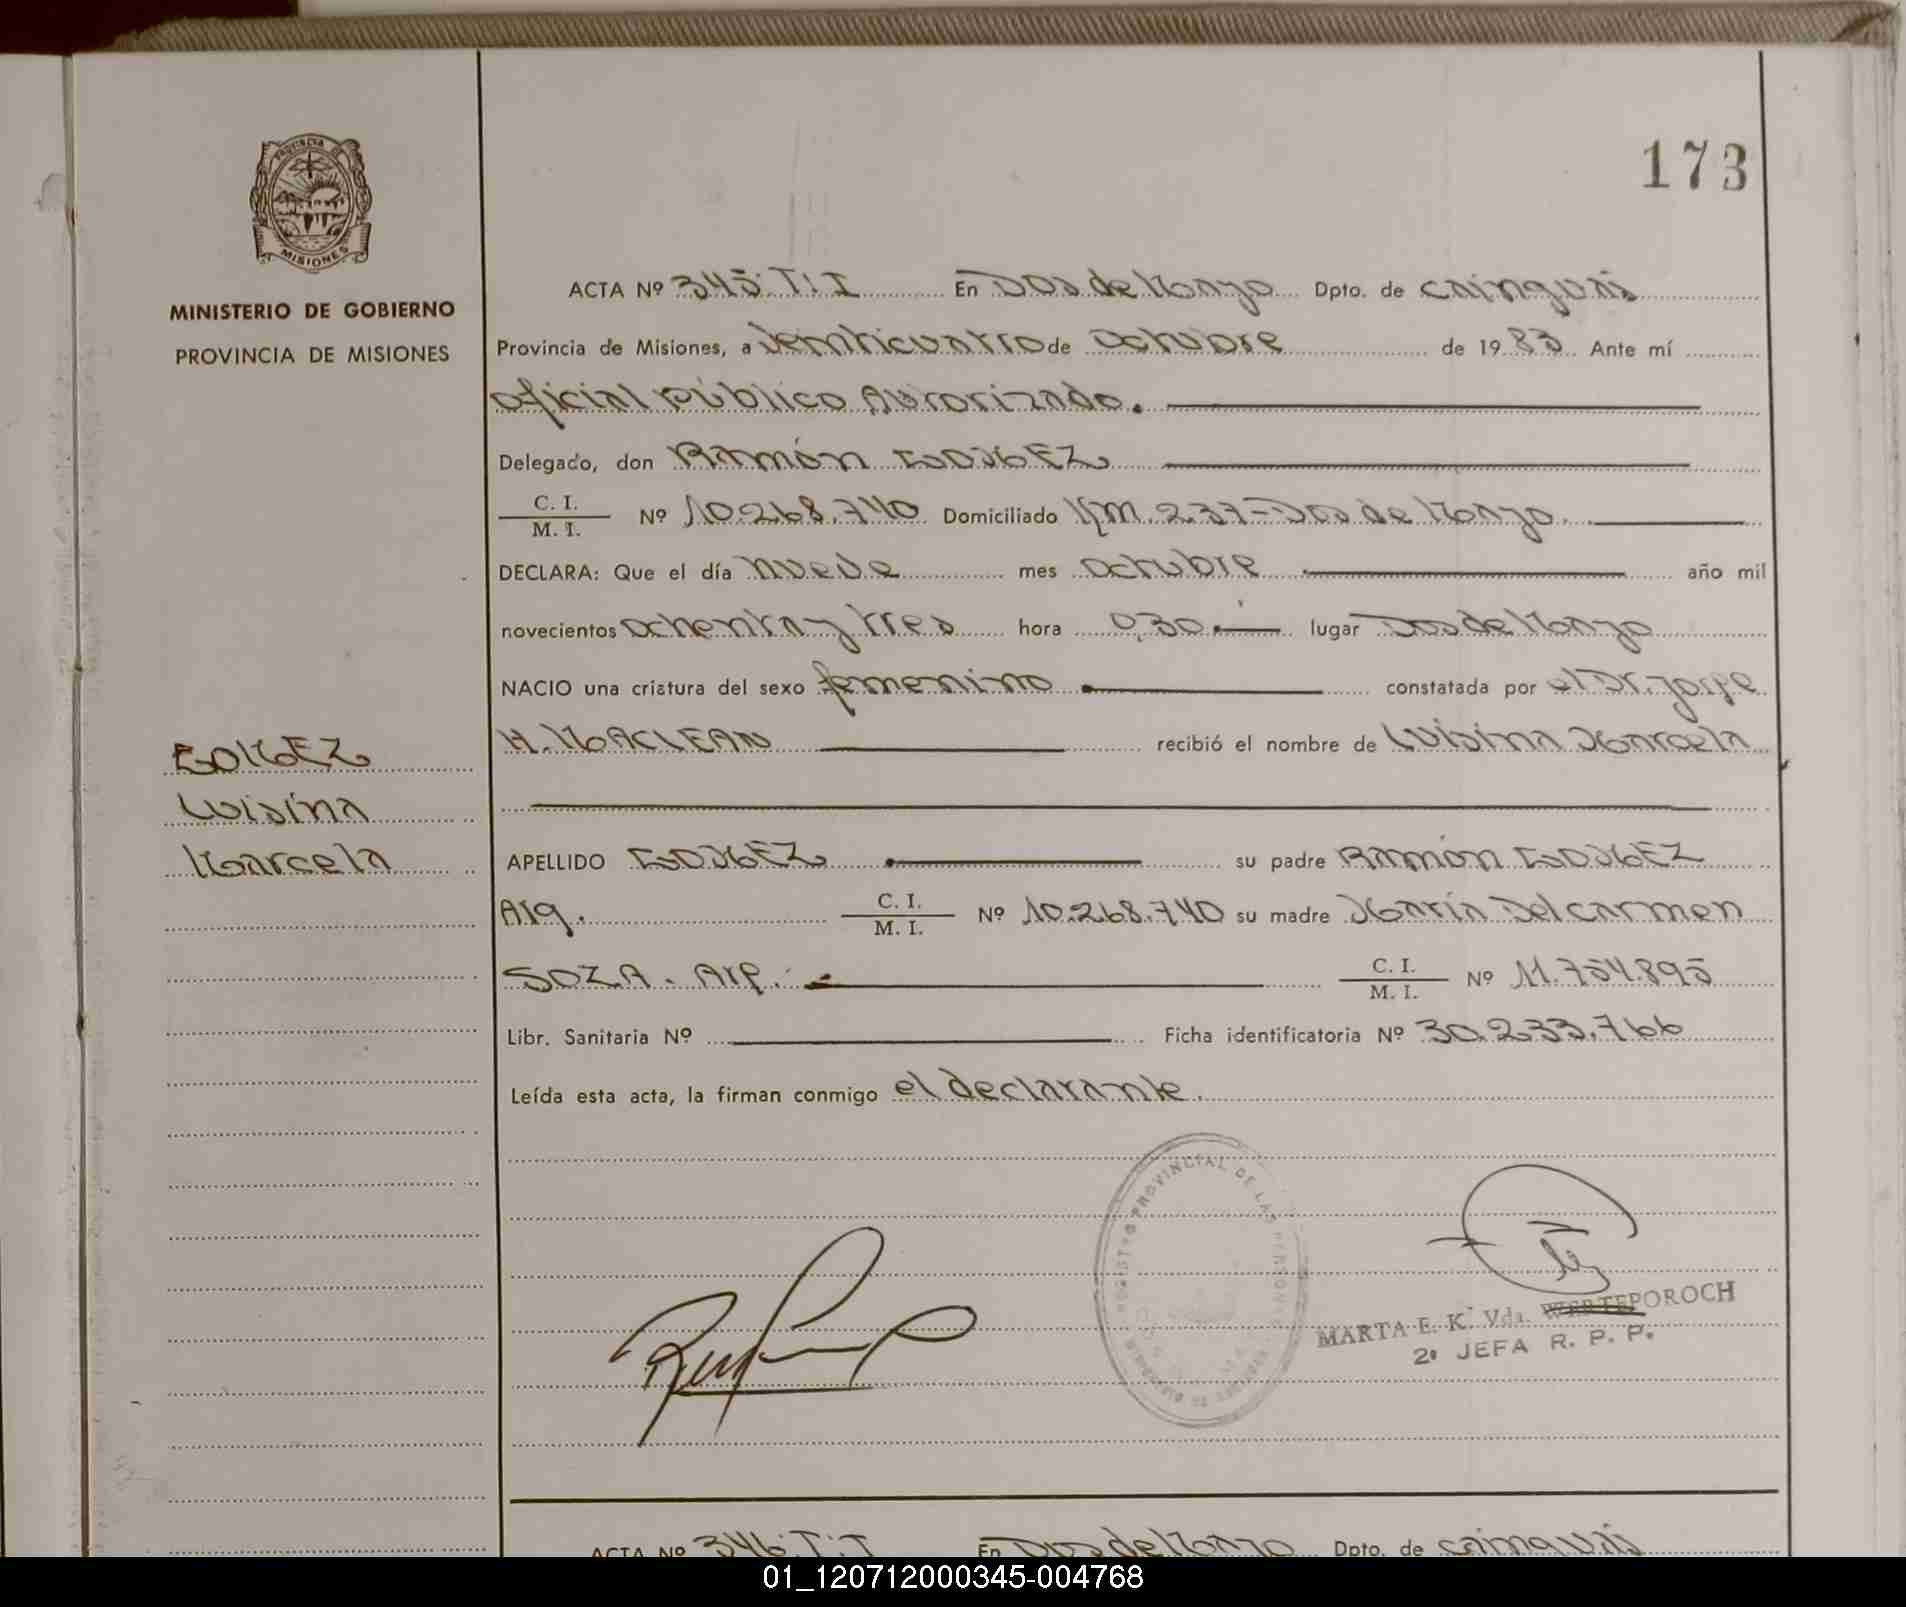 173
PROVINCIA DE
MISIONES
MINISTERIO DE GOBIERNO
PROVINCIA DE MISIONES
ACTA Nº 345. T: I En Dos de Mayo Dpto. de Cainguás
Provincia de Misiones, a veinticuatro de octubre de 1983 Ante mí
oficial público Autorizado.
Delegado, don RAMÓN GOMEZ
C. I.
M. I. Nº 10.268.740 Domiciliado Km. 237-Dos de Mayo.
DECLARA: Que el día nueve mes octubre año mil
novecientos ochenta y tres hora 0,30. lugar Dos de Mayo
NACIO una criatura del sexo femenino constatada por el Dr. Jorge
H. MACLEAN recibió el nombre de Luisina Marcela
GOMEZ
Luisina
Marcela
APELLIDO GOMEZ su padre RAMÓN GOMEZ
Arg. C. I.
M. I. Nº 10.268.740 su madre María Del carmen
SOZA. Arg. C. I.
M. I. Nº 11.754.895
Libr. Sanitaria Nº Ficha identificatoria Nº 30.233.766
Leída esta acta, la firman conmigo el declarante.
PROVINCIAL DE LAS PERSONAS
MARTA E. K. Vda. WERTEPOROCH
2ª JEFA R. P. P.
ACTA Nº 346. T: I En Dos de Mayo Dpto. de Cainguás
01_120712000345-004768